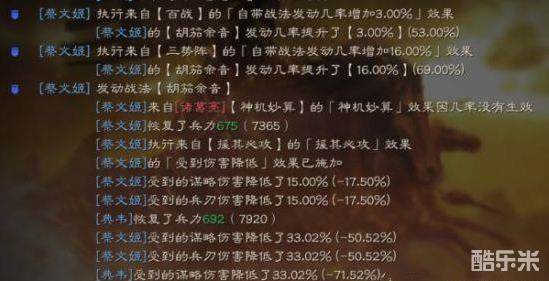 [蔡文姬] 执行来自【百战】的「自带战法发动几率增加3.00%」效果
[蔡文姬]的【胡笳余音】发动几率提升了【3.00%】(53.00%)
[蔡文姬] 执行来自【三势阵】的「自带战法发动几率增加16.00%」效果
[蔡文姬]的【胡笳余音】发动几率提升了【16.00%】(69.00%)
[蔡文姬] 发动战法【胡笳余音】
[蔡文姬]来自[诸葛亮]【神机妙算】的「神机妙算」效果因几率没有生效
[蔡文姬]恢复了兵力675（7365）
[蔡文姬]执行来自【援其必攻】的「援其必攻」效果
[蔡文姬]的「受到伤害降低」效果已施加
[蔡文姬]受到的谋略伤害降低了15.00%(-17.50%)
[蔡文姬]受到的兵刃伤害降低了15.00%(-17.50%)
[典韦]恢复了兵力692（7920）
[蔡文姬]受到的谋略伤害降低了33.02%(-50.52%)
[蔡文姬]受到的兵刃伤害降低了33.02%(-50.52%)
[典韦]受到的谋略伤害降低了33.02%(-71.52%)
酷乐米